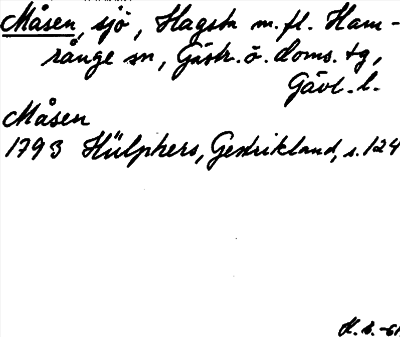 Måsen, sjö, Hagsta m.fl. Ham-
rånge sn, Gästr. ö. doms. tg,
Gävl. l.
Måsen
1793 Hülphers, Gestrikland, s. 124
H. S. -61